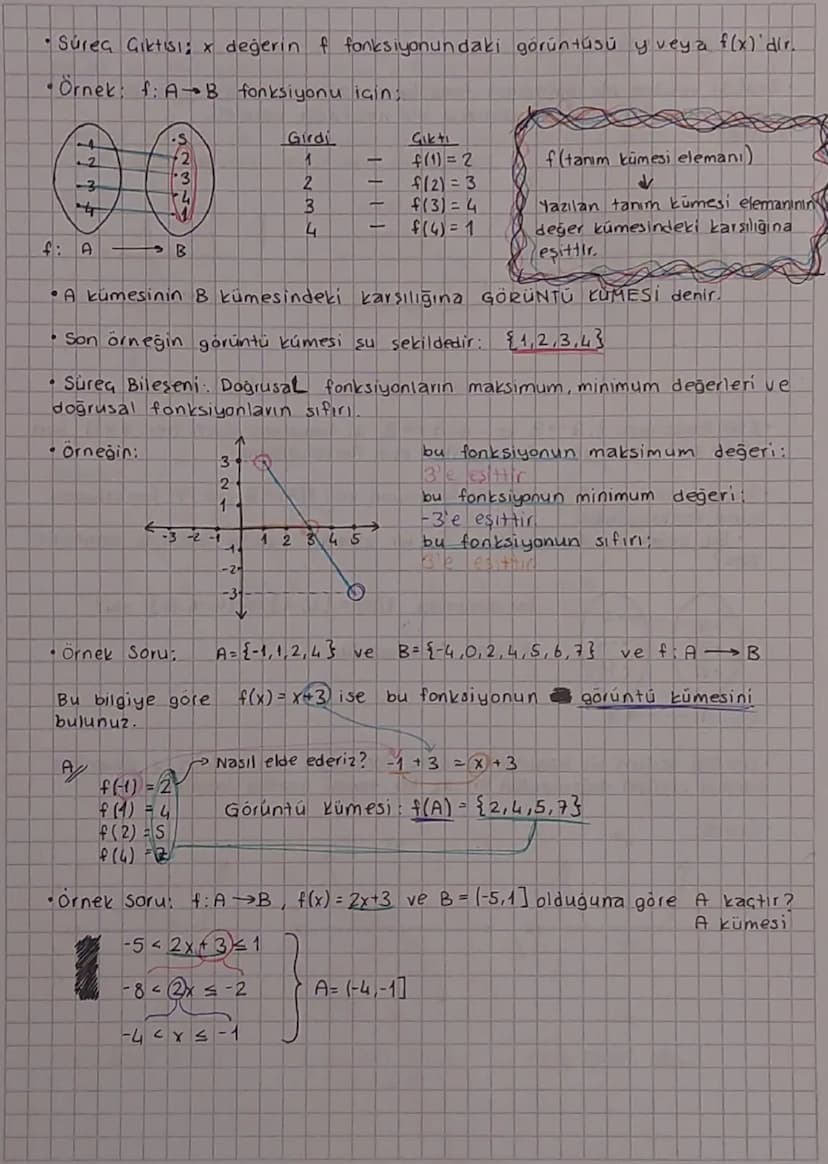 • Süreç Çıktısı: x değerin f fonksiyonundaki görüntüsü y veya f(x)'dir.
• Örnek: f: A→B fonksiyonu için;
1 2 3 4
5 2 3 4 1
f: A → B
Girdi Çıktı
1 – f(1) = 2
2 – f(2) = 3
3 – f(3) = 4
4 – f(4) = 1
f(tanım kümesi elemanı)
↓
Yazılan tanım kümesi elemanının
değer kümesindeki karşılığına
eşittir.
• A kümesinin B kümesindeki karşılığına GÖRÜNTÜ KÜMESİ denir.
• Son örneğin görüntü kümesi şu şekildedir: {1,2,3,4}
• Süreç Bileşeni: Doğrusal fonksiyonların maksimum, minimum değerleri ve
doğrusal fonksiyonların sıfırı.
• Örneğin:
3
2
1
-3 -2 -1 1 2 3 4 5
-1
-2
-3
bu fonksiyonun maksimum değeri:
3'e eşittir
bu fonksiyonun minimum değeri:
-3'e eşittir
bu fonksiyonun sıfırı:
3'e eşittir
• Örnek Soru: A={-1,1,2,4} ve B={-4,0,2,4,5,6,7} ve f: A → B
Bu bilgiye göre f(x) = x+3 ise bu fonksiyonun görüntü kümesini
bulunuz.
A//
→ Nasıl elde ederiz? -1 + 3 = x + 3
f(-1) = 2
f(1) = 4
f(2) = 5
f(4) = 7
Görüntü Kümesi: f(A) = {2,4,5,7}
• Örnek Soru: f: A→B, f(x) = 2x+3 ve B = (-5,1] olduğuna göre A kaçtır?
A kümesi
-5 < 2x + 3 ≤ 1
-8 < 2x ≤ -2
-4 < x ≤ -1
A = (-4,-1]